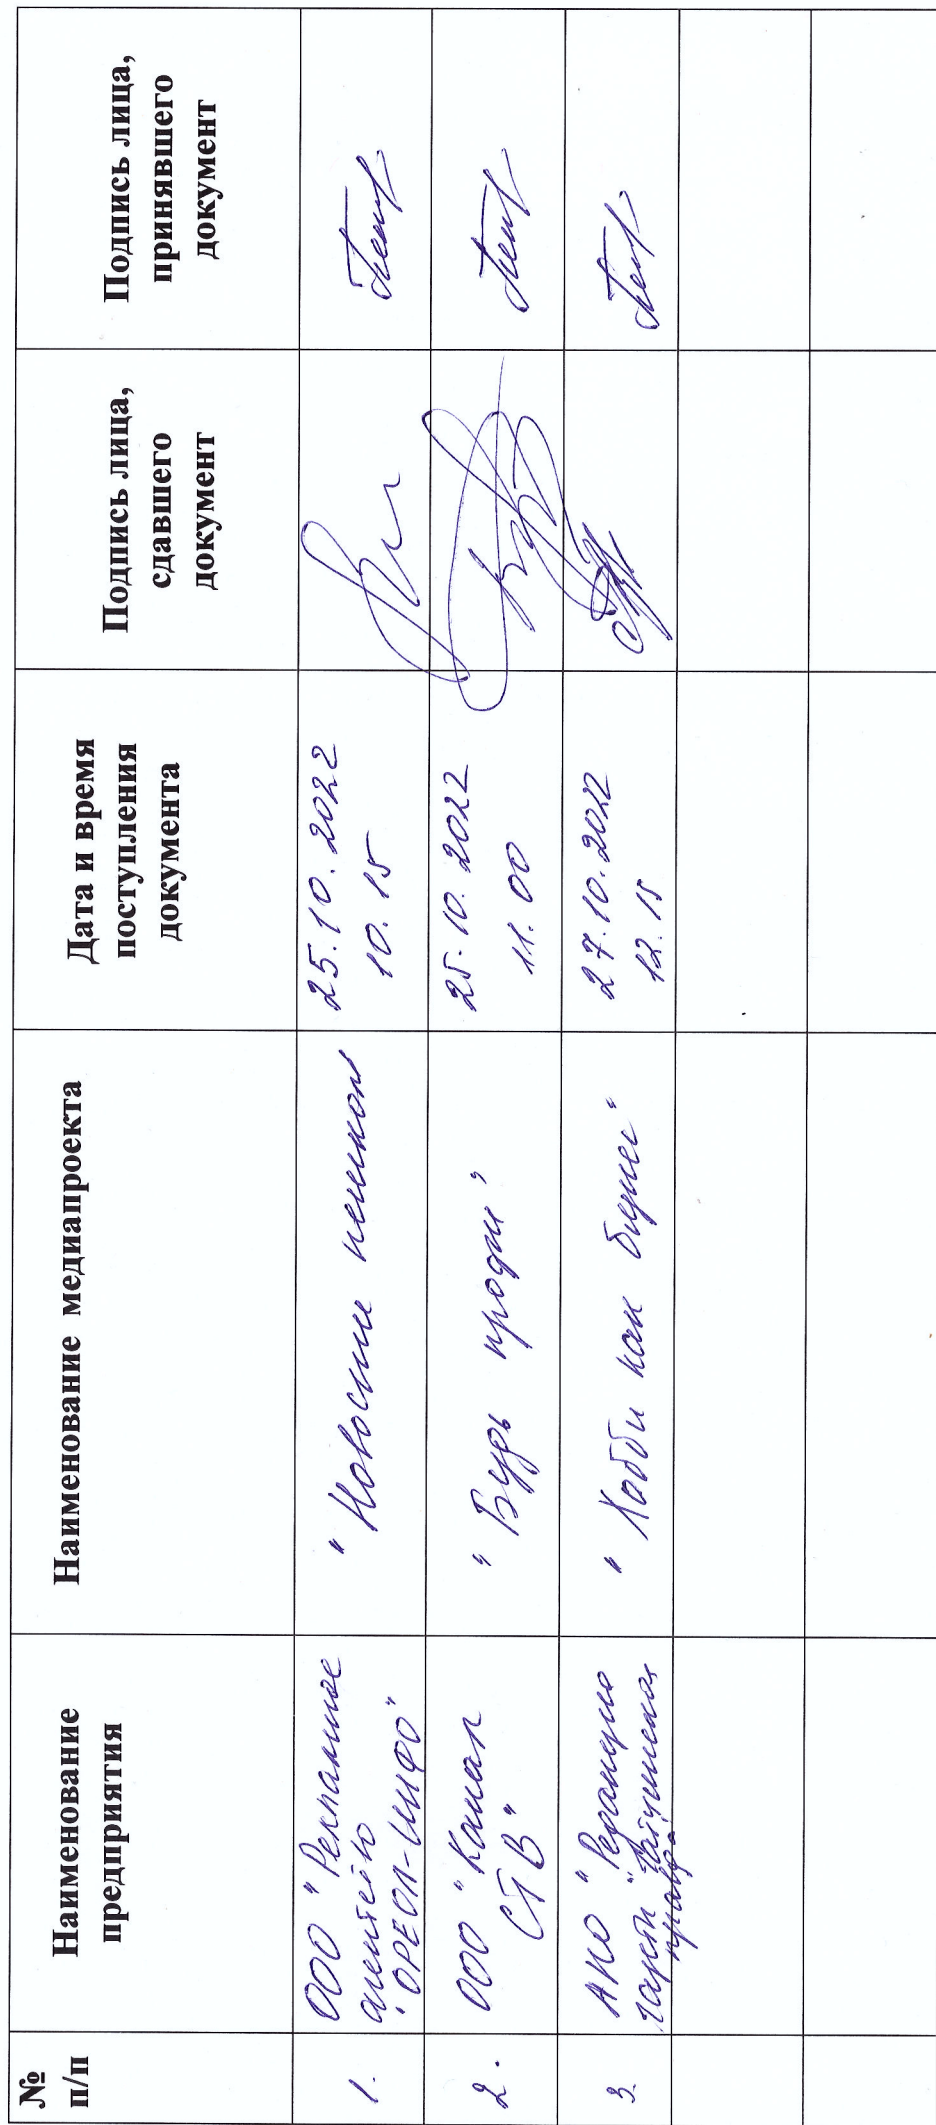 №
п/п
Наименование
предприятия
Наименование медиапроекта
Дата и время
поступления
документа
Подпись лица,
сдавшего
документ
Подпись лица,
принявшего
документ
1.
ООО "Рекламное
агентство
"ОРЕОЛ-ИНФО"
"Новости пешком
25.10.2022
10.15
2.
ООО "Канал
СТВ"
"Будь проди"
25.10.2022
11.00
3.
АНО "Редакция
газеты
правда"
"Хобби как бизнес"
27.10.2022
12.15